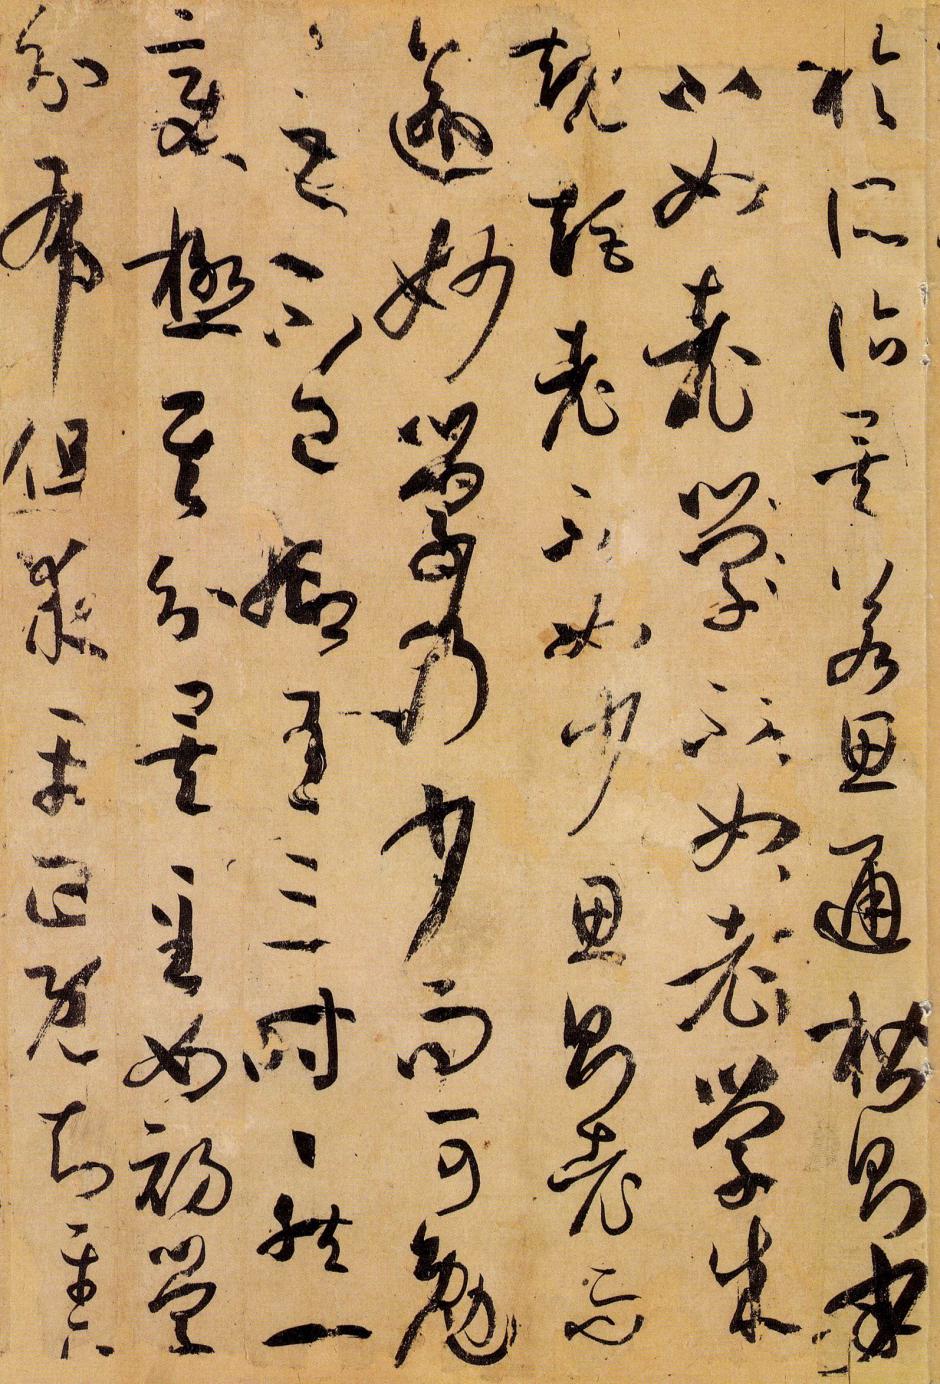 於所詣矣若思通楷則少
不如老學不如老學成
規矩老不如少思則老而
逾妙學乃少而可勉
〻之不已抑有三時〻然一
變極其分矣至如初學
分布但求平正既知平正